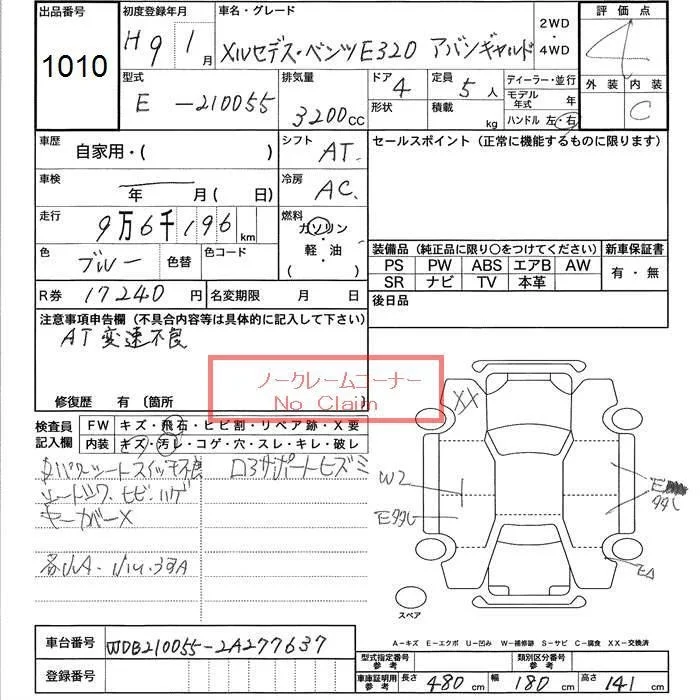 出品番号
1010
初度登録年月
H 9 1月
車名・グレード
メルセデス・ベンツ E320 アバンギャルド
2WD
・
4WD
評価点
4
型式
E-210055
排気量
3200CC
ドア
4
形状
定員
5人
積載
kg
ディーラー・並行
モデル年式 年
ハンドル 左・右
外装 内装
C
車歴
自家用・( )
シフト
AT
セールスポイント（正常に機能するものに限ります）
車検
年 月(日)
冷房
AC
走行
9万6千196km
燃料
ガソリン
・
軽・油
・
色
ブルー
色替
色コード
装備品（純正品に限り○をつけてください）
新車保証書
PS PW ABS エアB AW
SR ナビ TV 本革
有・無
R券 17240円
名変期限 月 日
後日品
注意事項申告欄（不具合内容等は具体的に記入して下さい）
AT変速不良
ノークレームコーナー
No Claim
修復歴 有(箇所
検査員記入欄
FW キズ・飛石・ヒビ割・リペア跡・X要
内装 キズ・汚レ・コゲ・穴・スレ・キレ・破レ
パワーシートスイッチ不良
コアサポートヒズミ
XX
W2
E
スペア
車台番号
WDB210055-2A277637
登録番号
A-キズ E-エクボ U-凹み W-補修跡 S-サビ C-腐食 XX-交換済
型式指定番号
参考
類別区分番号
参考
車庫証明用
参考
長さ 480cm 幅 180cm 高さ 141cm